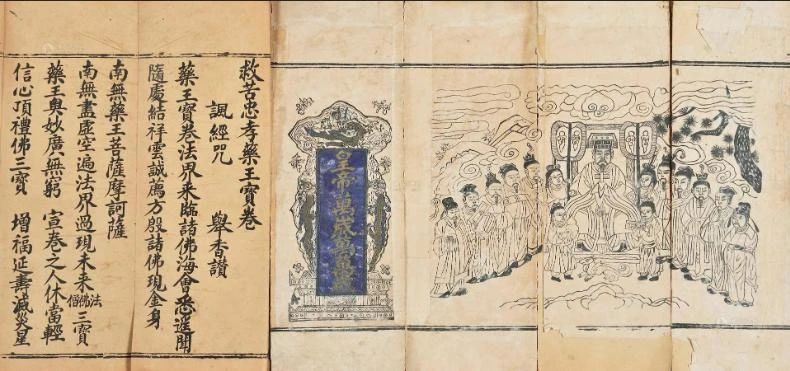 皇帝萬歲萬萬歲
救苦忠孝藥王寶卷
諷經咒 舉香讚
藥王寶卷法界來臨諸佛海會悉遙聞
隨處結祥雲誠薦方殷諸佛現金身
南無藥王菩薩摩訶薩
南無盡虛空遍法界過現未來佛法僧三寶
藥王奧妙廣無窮 宣卷之人休當輕
信心頂禮佛三寶 增福延壽滅災星